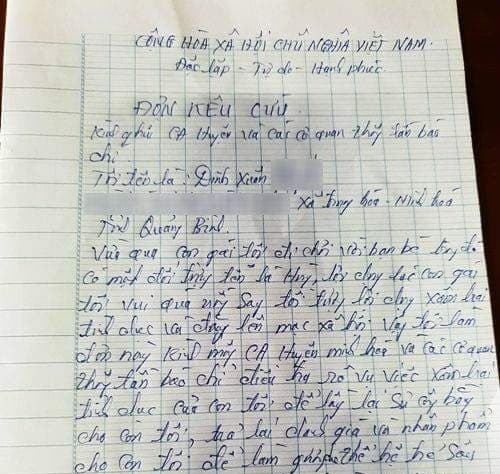 CỘNG HÒA XÃ HỘI CHỦ NGHĨA VIỆT NAM.
Độc lập - Tự do - Hạnh phúc
ĐƠN KÊU CỨU.
Kính gửi CA Huyện và các cơ quan thông tấn báo
chí
Tôi tên là: Đinh Xuân
xã Trung hóa - Minh hoá
Tỉnh Quảng Bình.
Vừa qua con gái tôi đi chơi với bạn bè
có một đối tượng tên là Huy, lôi con gái
tôi, vui quá uống say tối xâm hại
tình dục và đăng lên mạc xã hội vậy tôi làm
đơn này kính mong CA Huyện minh hoá và các cơ quan
thông tấn báo chí điều tra rõ vụ việc xâm hại
tình dục của con tôi để lấy lại sự công bằng
cho con tôi, trả lại danh giá và nhân phẩm
cho con tôi để làm gương thế hệ sau